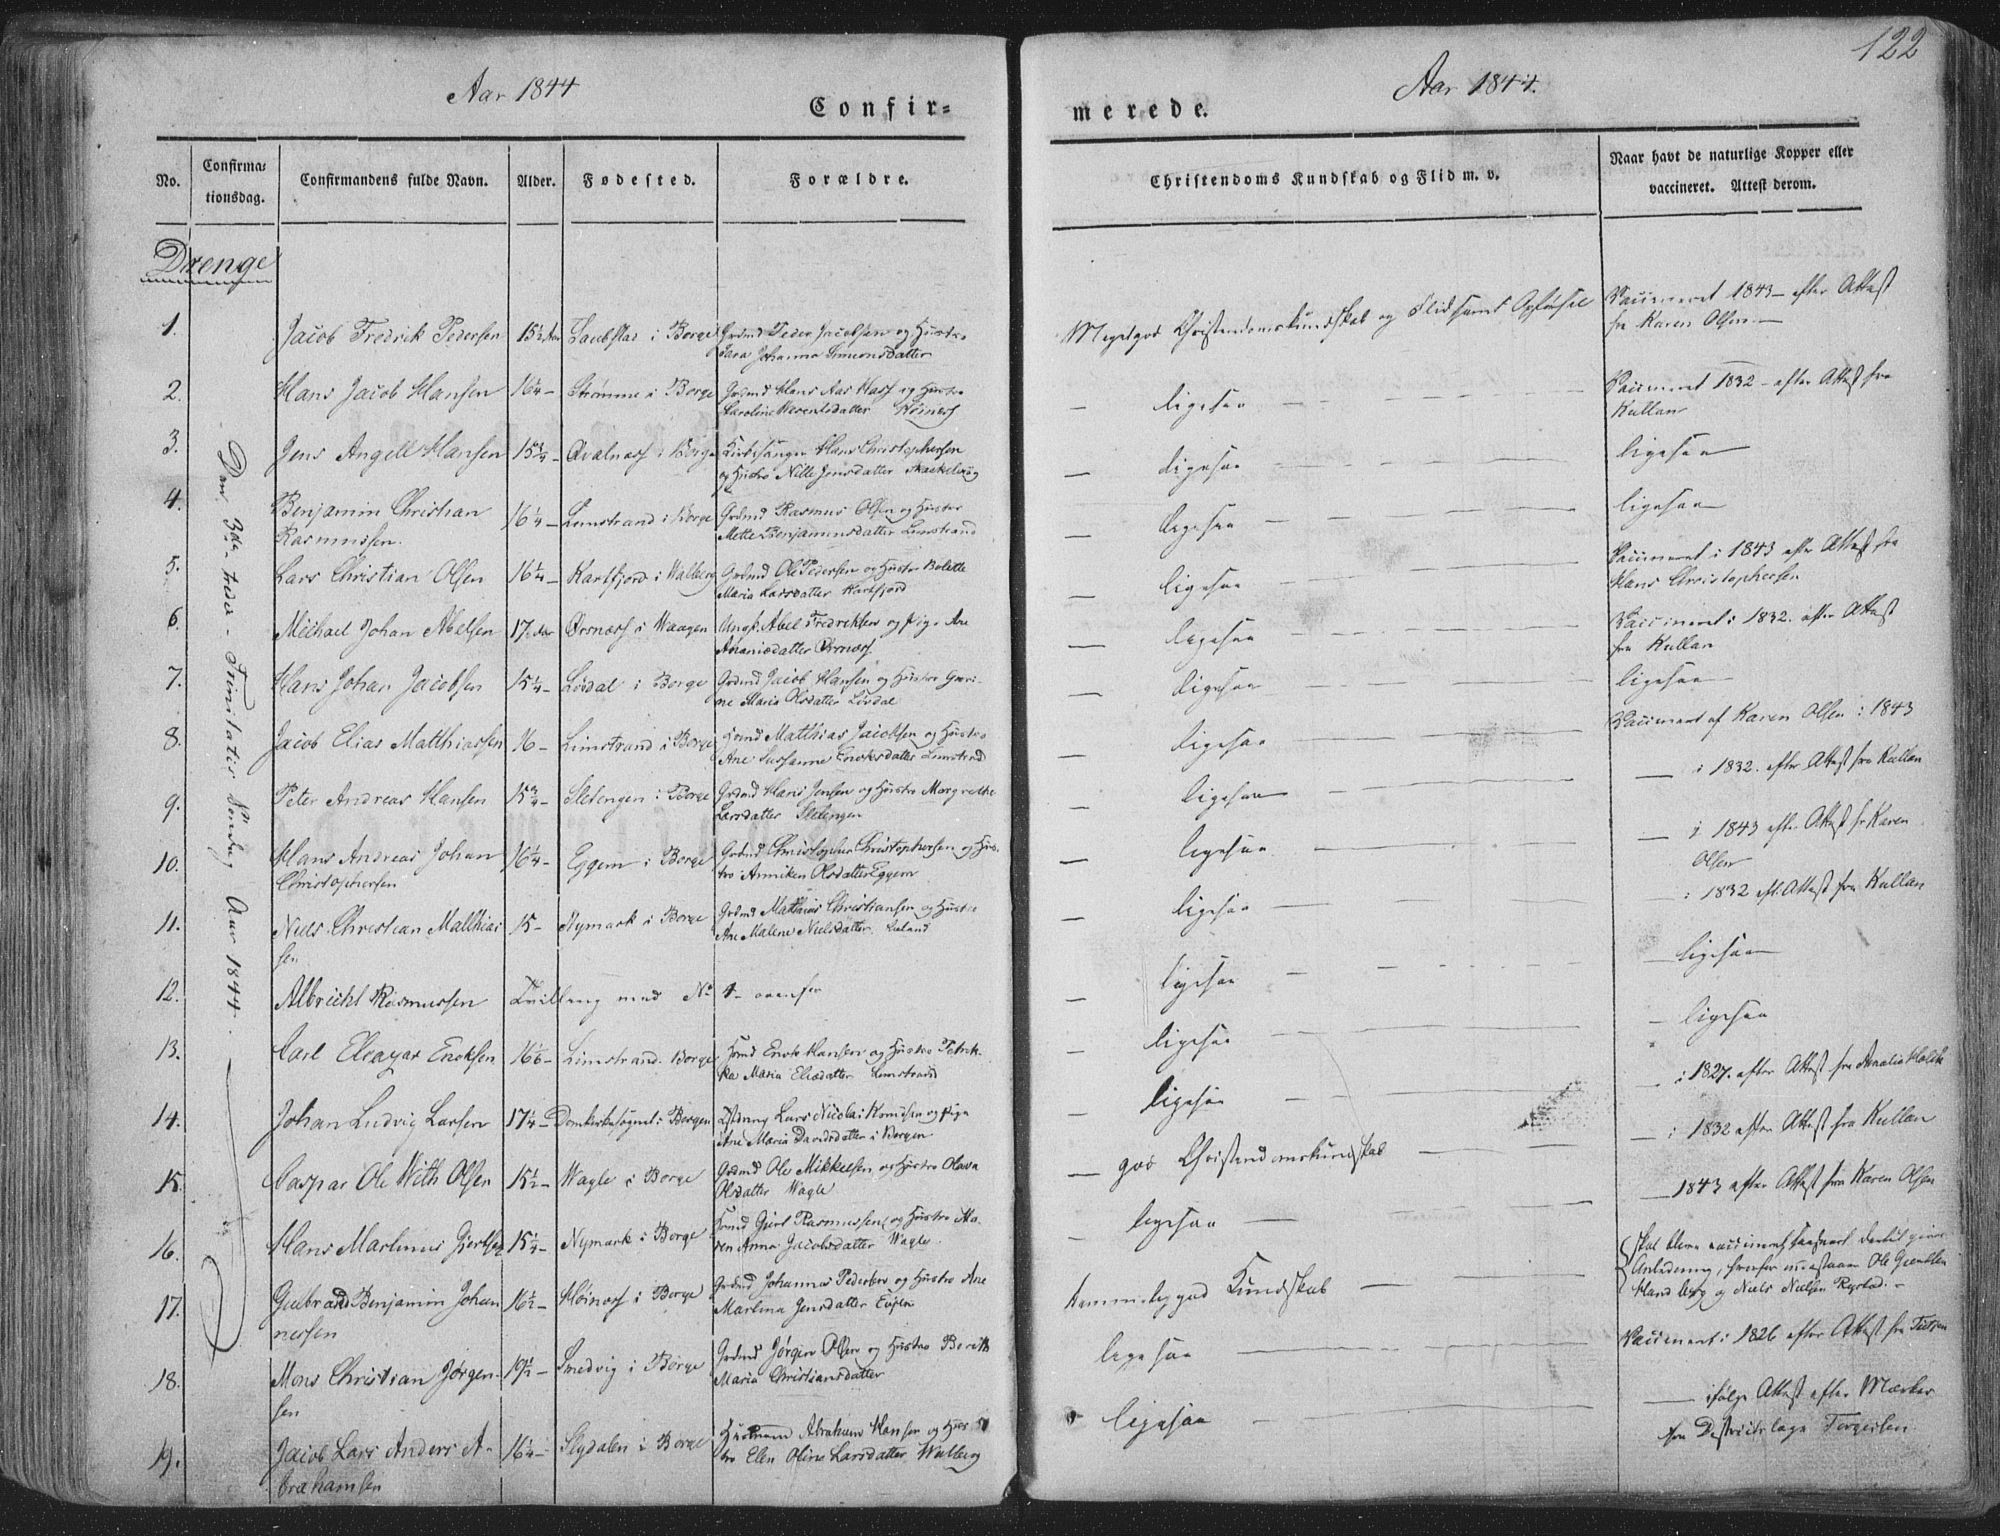 122
Aar 1844
Aar 1844.
Confir=
merede.
No.
Confirma-
tionsdag.
Confirmandens fulde Navn.
Alder.
Fødested.
Forældre.
Christendoms Kundskab og Flid m. v.
Naar havt de naturlige Kopper eller
vaccineret. Attest derom.
Drenge
Den 3die Trinitatis Søndag Aar 1844.
1. Jacob Fredrik Pedersen 15½ Aar i Borge Grdmd Peder Jacobsen og Hustro
Johanna Simonsdatter
Meget god Christendomskundskab og Flid samt Opførsel
Vaccineret 1843 – efter Attest
fra Karen Olsen –
2. Hans Jacob Hansen 16¼ – Strømme i Borge Grdmd Hans Aas Hass og Hustro
Caroline
– ligesaa –
Vaccineret 1832 – efter Attest fra
Kullan
3. Jens Angell Hansen 15¾ – Qvalnæss i Borge Kirkesanger Hans Christophersen
og Hustro Nille Jensdatter
– ligesaa –
ligesaa
4. Benjamin Christian
Rasmussen. 16¼ – Limstrand i Borge Grdmd Rasmus Olsen og Hustro
Mette Benjaminsdatter Limstrand
– ligesaa –
ligesaa
5. Lars Christian Olsen 16¼ – Kartfjord i Walberg Grdmd Ole Pedersen og Hustro Bolette
Maria Larsdatter Kartfjord
– ligesaa –
Vaccineret i 1843 efter Attest fra
Hans Christophersen
6. Michael Johan Abelsen 17. Aar Ørsnæss i Waagen Ungk. Abel Fredriksen og Pige Ane
Ananiadatter Ørsnæss
– ligesaa –
Vaccineret i 1832. efter Attest
fra Kullan
7. Hans Johan Jacobsen 15¼ – Løvdal i Borge Grdmd Jacob Hansen og Hustro
ne Maria Olsdatter Løvdal
– ligesaa –
ligesaa
8. Jacob Elias Matthiassen 16 – Limstrand i Borge Matthias Jacobsen og Hustro
Ane Susanne Enoksdatter Limstrand
– ligesaa –
Vaccineret af Karen Olsen i 1843
9. Peter Andreas Hansen 15¾ – Sletengen i Borge Grdmd Hans Jensen og Hustro Margrethe
Larsdatter Sletengen
– ligesaa –
– i 1832. efter Attest fra Kullan
10. Hans Andreas Johan
Christophersen 16¼ – Eggem i Borge Grdmd Christopher Christophersen og Hus-
tro Anniken Olsdatter Eggem
– ligesaa –
– i 1843 efter Attest fr Karen
Olsen
11. Niels Christian Matthias
sen 15 – Nymark i Borge Grdmd Mathias Christiansen og Hustro
Ane Malene Nielsdatter
– ligesaa –
i 1832 eft. Attest fra Kullan
12. Albricht Rasmussen Tvilling med No 4 – ovenfor
– ligesaa –
– ligesaa
13. Carl Eleazar Enoksen 16 – Limstrand. Borge Enok Hansen og Hustro Petrik-
ka Maria Limstrand
– ligesaa –
– ligesaa
14. Johan Ludvig Larsen 17¼ – Domkirkesognet i Bergen Lars Nicolai Knudsen og Pige
Ane Maria Davidsdatter i Bergen
– ligesaa –
– i 1827. efter Attest fra
15. Caspar Ole With Olsen 15½ – Wagle i Borge Grdmd Ole Mikkelsen og Hustro Olava
Olsdatter Wagle
– god Christendomskundskab –
– i 1832 efter Attest fra Kullan
16. Hans Martinus Giertsen 15¼ – Nymark i Borge Giert Rasmussen og Hustro Ma-
ren Anna Jacobsdatter Wagle
– ligesaa –
– 1843 efter Attest fra Karen Olsen
17. Gulbrand Benjamin Johan
nessen 16½ – Høinæss i Borge Grdmd Johannes Pedersen og Hustro Ane
Martina Jensdatter
Kundskab –
Ole
og Niels Nielsen
18. Mons Christian Jørgen-
sen 19½ – Smedvig i Borge Grdmd Jørgen Olsen og Hustro Berith
Maria Christiansdatter
ligesaa –
Vaccineret i 1826 efter Attest fra
19. Jacob Lars Anders A-
brahamsen 16¼ – Slydalen i Borge Huusmand Abraham Hansen og Hus-
tro Elen Oline Larsdatter Walberg
ligesaa –
– ifølge Attest efter Mærker
fra Districtslæge